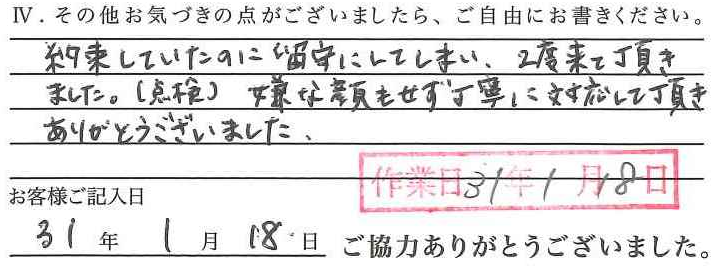 Ⅳ．その他お気づきの点がございましたら、ご自由にお書きください。
約束していたのに留守にしてしまい、2度来て頂き
ました。(点検) 嫌な顔もせず丁寧に対応して頂き
ありがとうございました、
作業日31年1月18日
お客様ご記入日
31年1月18日 ご協力ありがとうございました。